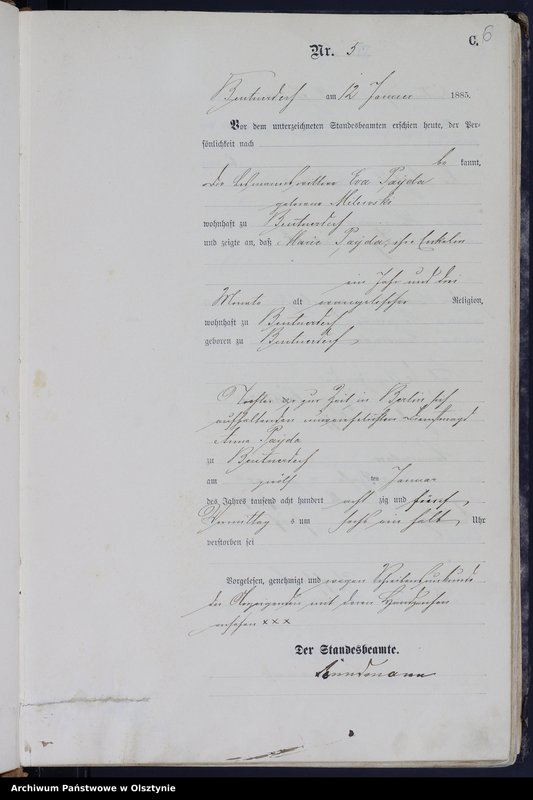 C. 6
Nr. 5
am 12 Januar 1885.
Vor dem unterzeichneten Standesbeamten erschien heute, der Per-
sönlichkeit nach
be kannt,
die Eva Payda
geborene
wohnhaft zu
und zeigte an, daß Marie Payda, ihre Enkelin
ein Jahr und drei
Monate alt evangelischer Religion,
wohnhaft zu
geboren zu
Tochter der zur Zeit in Berlin sich
aufhaltenden unverehelichten Dienstmagd
Anna Payda
zu
am zwölf ten Januar
des Jahres tausend acht hundert acht zig und fünf
Vormittag s um sechs ein halb Uhr
verstorben sei
Vorgelesen, genehmigt und wegen Schreibensunkunde
der Anzeigenden mit deren Handzeichen
versehen xxx
Der Standesbeamte.
Archiwum Państwowe w Olsztynie